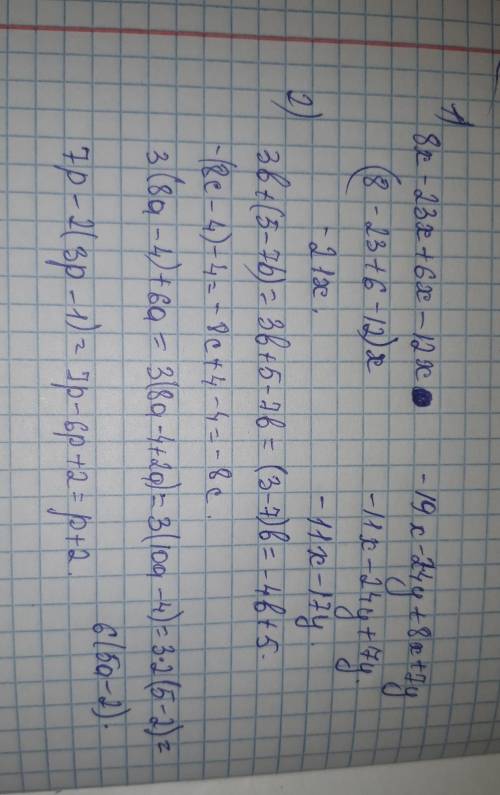 1) 8x - 23x + 6x - 12x
(8 - 23 + 6 - 12)x
- 21x.
- 19x - 24y + 8x + 7y
- 11x - 24y + 7y.
- 11x - 17y.
2)
3b + (5 - 7b) = 3b + 5 - 7b = (3 - 7)b = -4b + 5.
-(8c - 4) - 4 = - 8c + 4 - 4 = - 8c.
3(8a - 4) + 6a = 3(8a - 4 + 2a) = 3(10a - 4) = 3·2(5 - 2) =
6(5a - 2).
7p - 2(3p - 1) = 7p - 6p + 2 = p + 2.